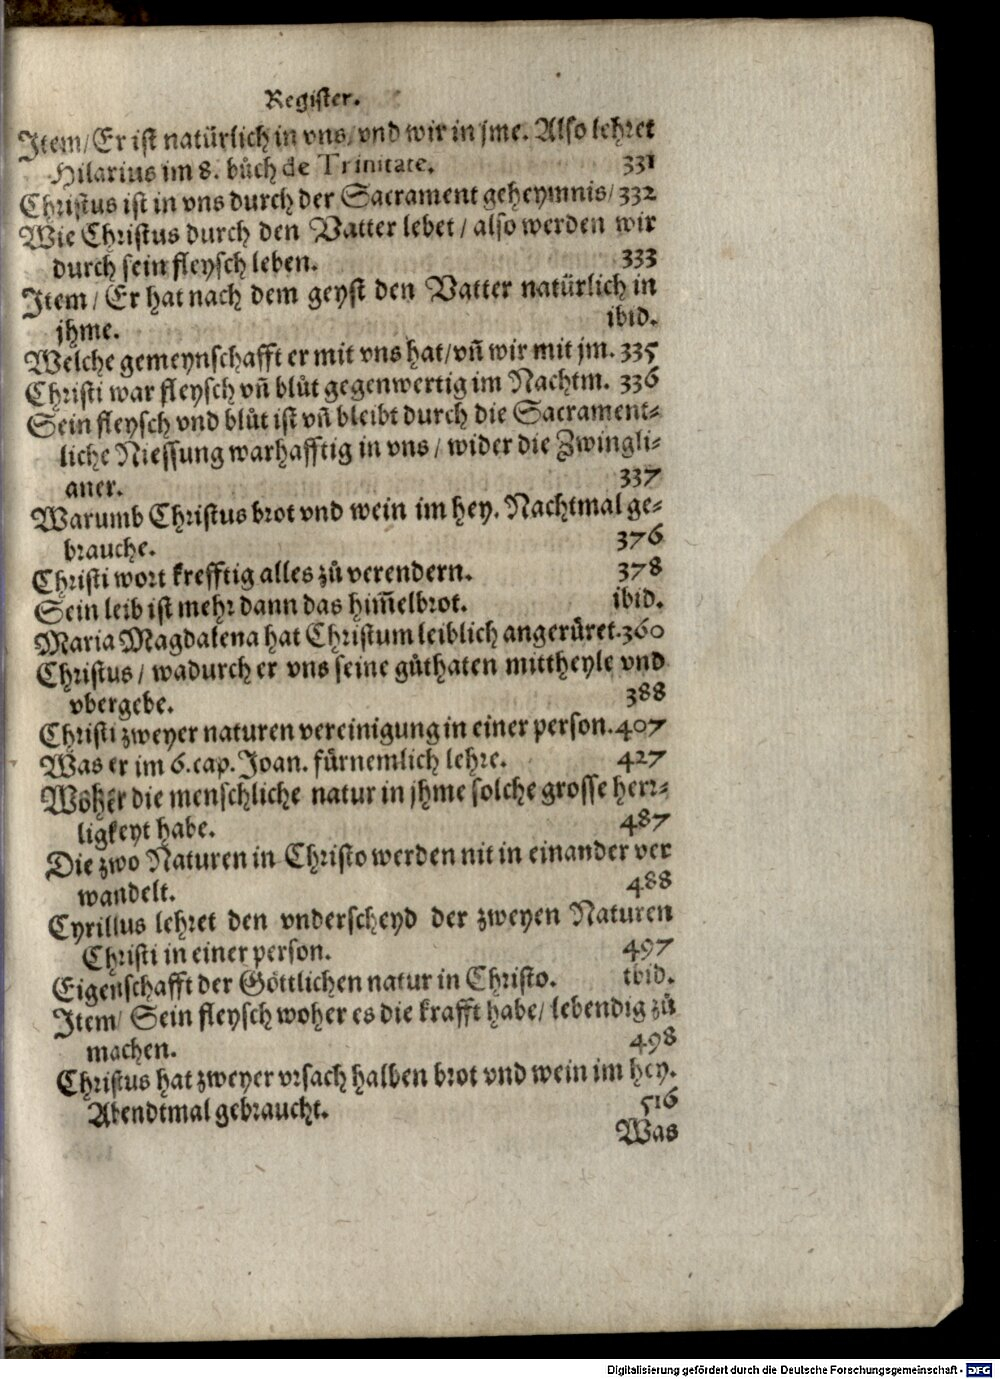 Register.
Item/ Er ist natürlich in vns/ vnd wir in jme. Also lehret
Hilarius im 8. bůch de Trinitate. 331
Christus ist in vns durch der Sacrament geheymnis/ 332
Wie Christus durch den Vatter lebet / also werden wir
durch sein fleysch leben. 333
Item / Er hat nach dem geyst den Vatter natürlich in
jhme. ibid.
Welche gemeynschafft er mit vns hat/ vn̄ wir mit jm. 335
Christi war fleysch vn̄ blůt gegenwertig im Nachtm. 336
Sein fleysch vnd blůt ist vn̄ bleibt durch die Sacrament⸗
liche Niessung warhafftig in vns / wider die Zwingli⸗
aner. 337
Warumb Christus brot vnd wein im hey. Nachtmal ge⸗
brauche. 376
Christi wort krefftig alles zů verendern. 378
Sein leib ist mehr dann das him̄elbrot. ibid.
Maria Magdalena hat Christum leiblich angerůret. 360
Christus / wadurch er vns seine gůthaten mittheyle vnd
vbergebe. 388
Christi zweyer naturen vereinigung in einer person. 407
Was er im 6. cap. Joan. fürnemlich lehre. 427
Woher die menschliche natur in jhme solche grosse herr⸗
ligkeyt habe. 487
Die zwo Naturen in Christo werden nit in einander ver
wandelt. 488
Cyrillus lehret den vnderscheyd der zweyen Naturen
Christi in einer person. 497
Eigenschafft der Göttlichen natur in Christo. ibid.
Item/ Sein fleysch woher es die krafft habe/ lebendig zů
machen. 498
Christus hat zweyer vrsach halben brot vnd wein im hey.
Abendtmal gebraucht. 516
Was
Digitalisierung gefördert durch die Deutsche Forschungsgemeinschaft - DFG